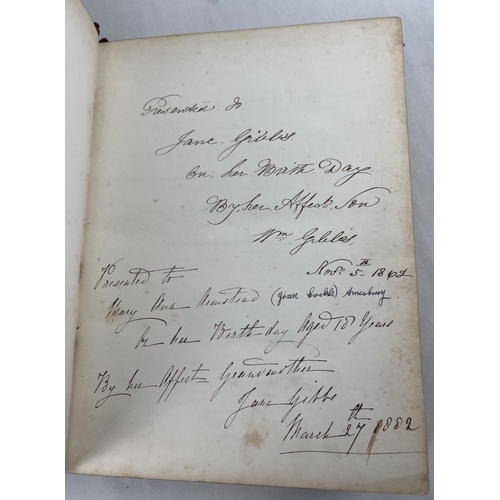 Presented to
Jane Gibbs
on her Birth Day
By her Affect. Son
Wm Gibbs,
Novr 5th 1862
Presented to
Mary Ann Armstead Amesbury
her Birthday Aged 18 Years
By her Affect Grandmother
Jane Gibbs
March 27th 1882